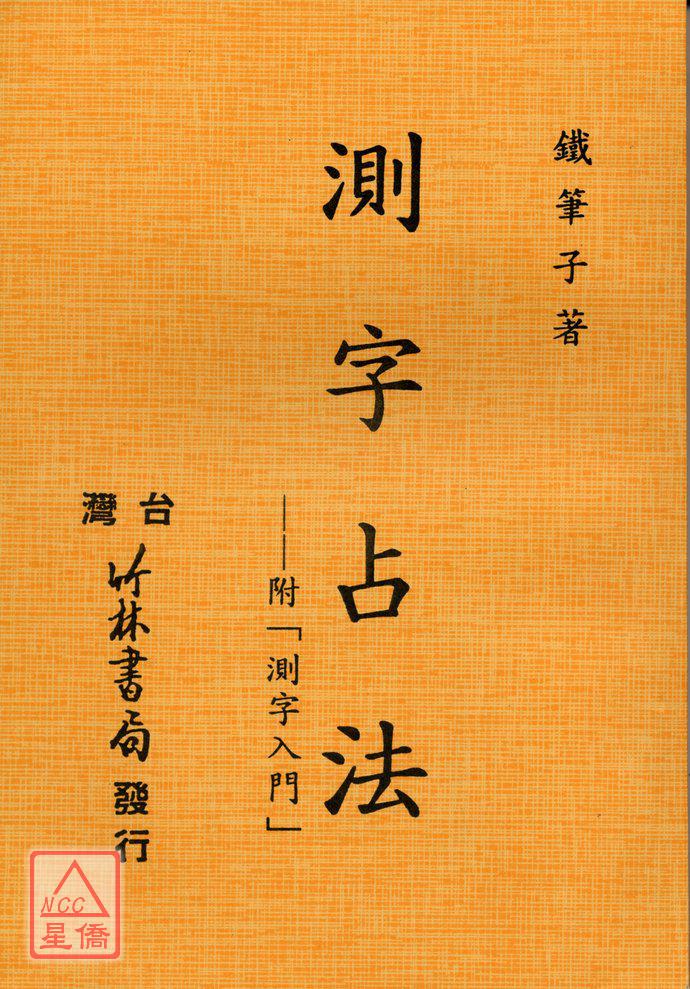 鐵筆子著
測字占法
——附「測字入門」
台灣
竹林書局發行
NCC
星僑